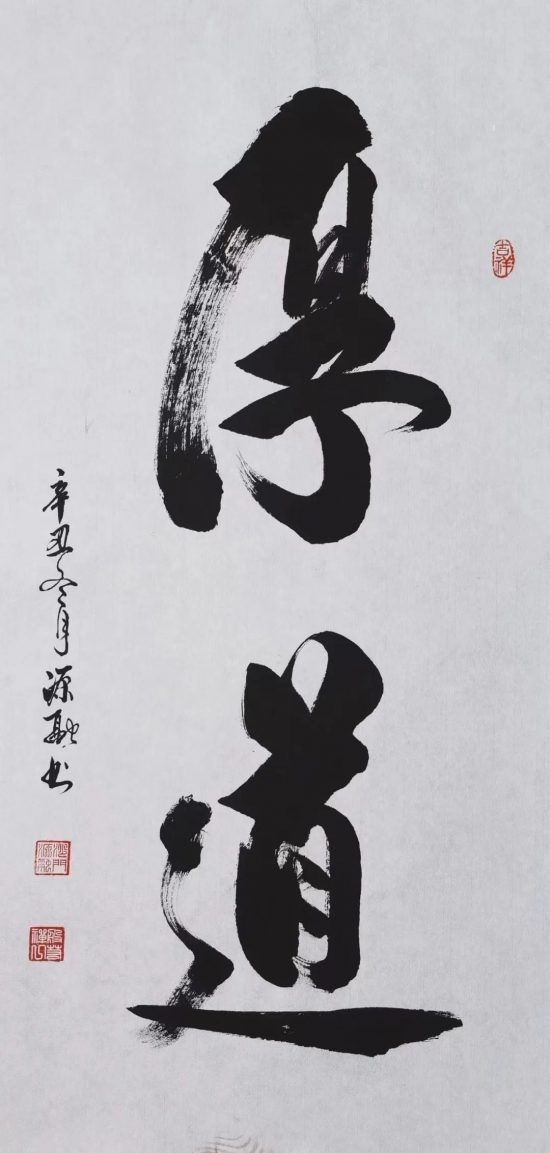 厚道
吉祥
辛丑冬月源融书